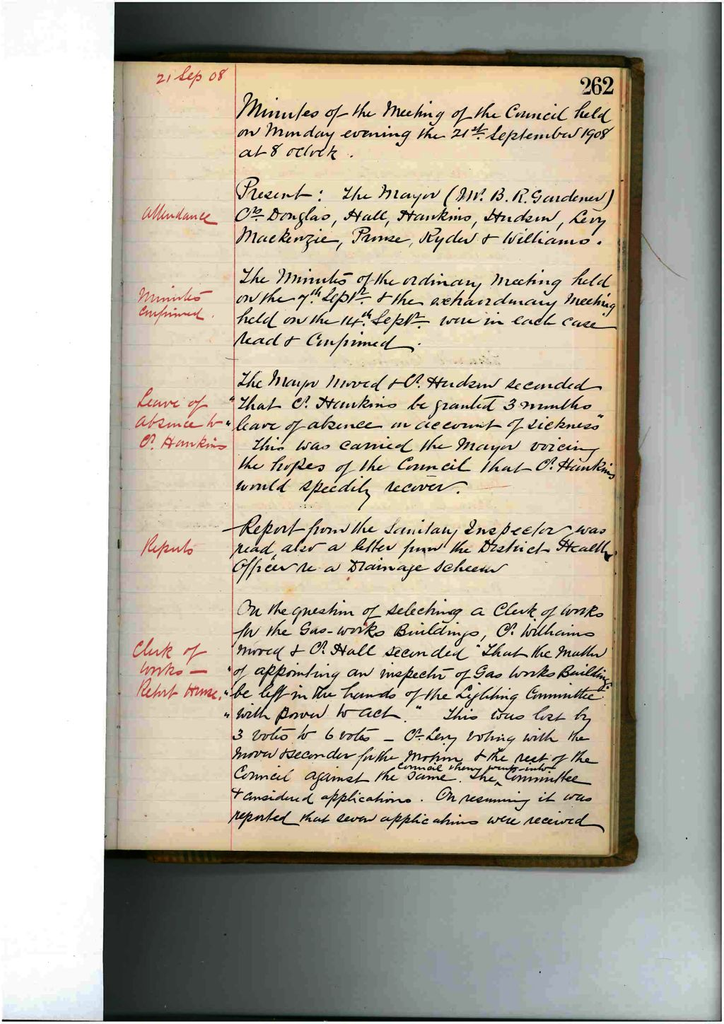 21 Sep 08
262
Minutes of the Meeting of the Council held
on Monday evening the 21st September 1908
at 8 oclock.
Attendance
Present: The Mayor (Mr. B. R. Gardener)
Crs. Douglas, Hall, Hawkins, Hudson, Levy
Mackenzie, Prouse, Ryder & Williams.
Minutes
Confirmed.
The Minutes of the ordinary Meeting held
on the 7th Septr. & the extraordinary Meeting
held on the 14th Septr. were in each case
read & Confirmed.
Leave of
absence to
Cr. Hawkins
The Mayor Moved & Cr. Hudson seconded
"That Cr. Hawkins be granted 3 months
"leave of absence on account of sickness"
This was carried the Mayor voicing
the hopes of the Council that Cr. Hawkins
would speedily recover.
Reports
Report from the Sanitary Inspector was
read, also a letter from the District Health
Officer re a Drainage Scheme
Clerk of
Works —
Retort House.
On the question of selecting a Clerk of works
for the Gas-works Buildings, Cr. Williams
moved & Cr. Hall seconded "That the matter
"of appointing an inspector of Gas Works Buildings
"be left in the hands of the Lighting Committee
"with power to act." This was lost by
3 votes to 6 votes — Cr. Levy voting with the
mover & seconder for the motion & the rest of the
Council against the same. The Council then went into Committee
& considered applications. On resuming it was
reported that seven applications were received